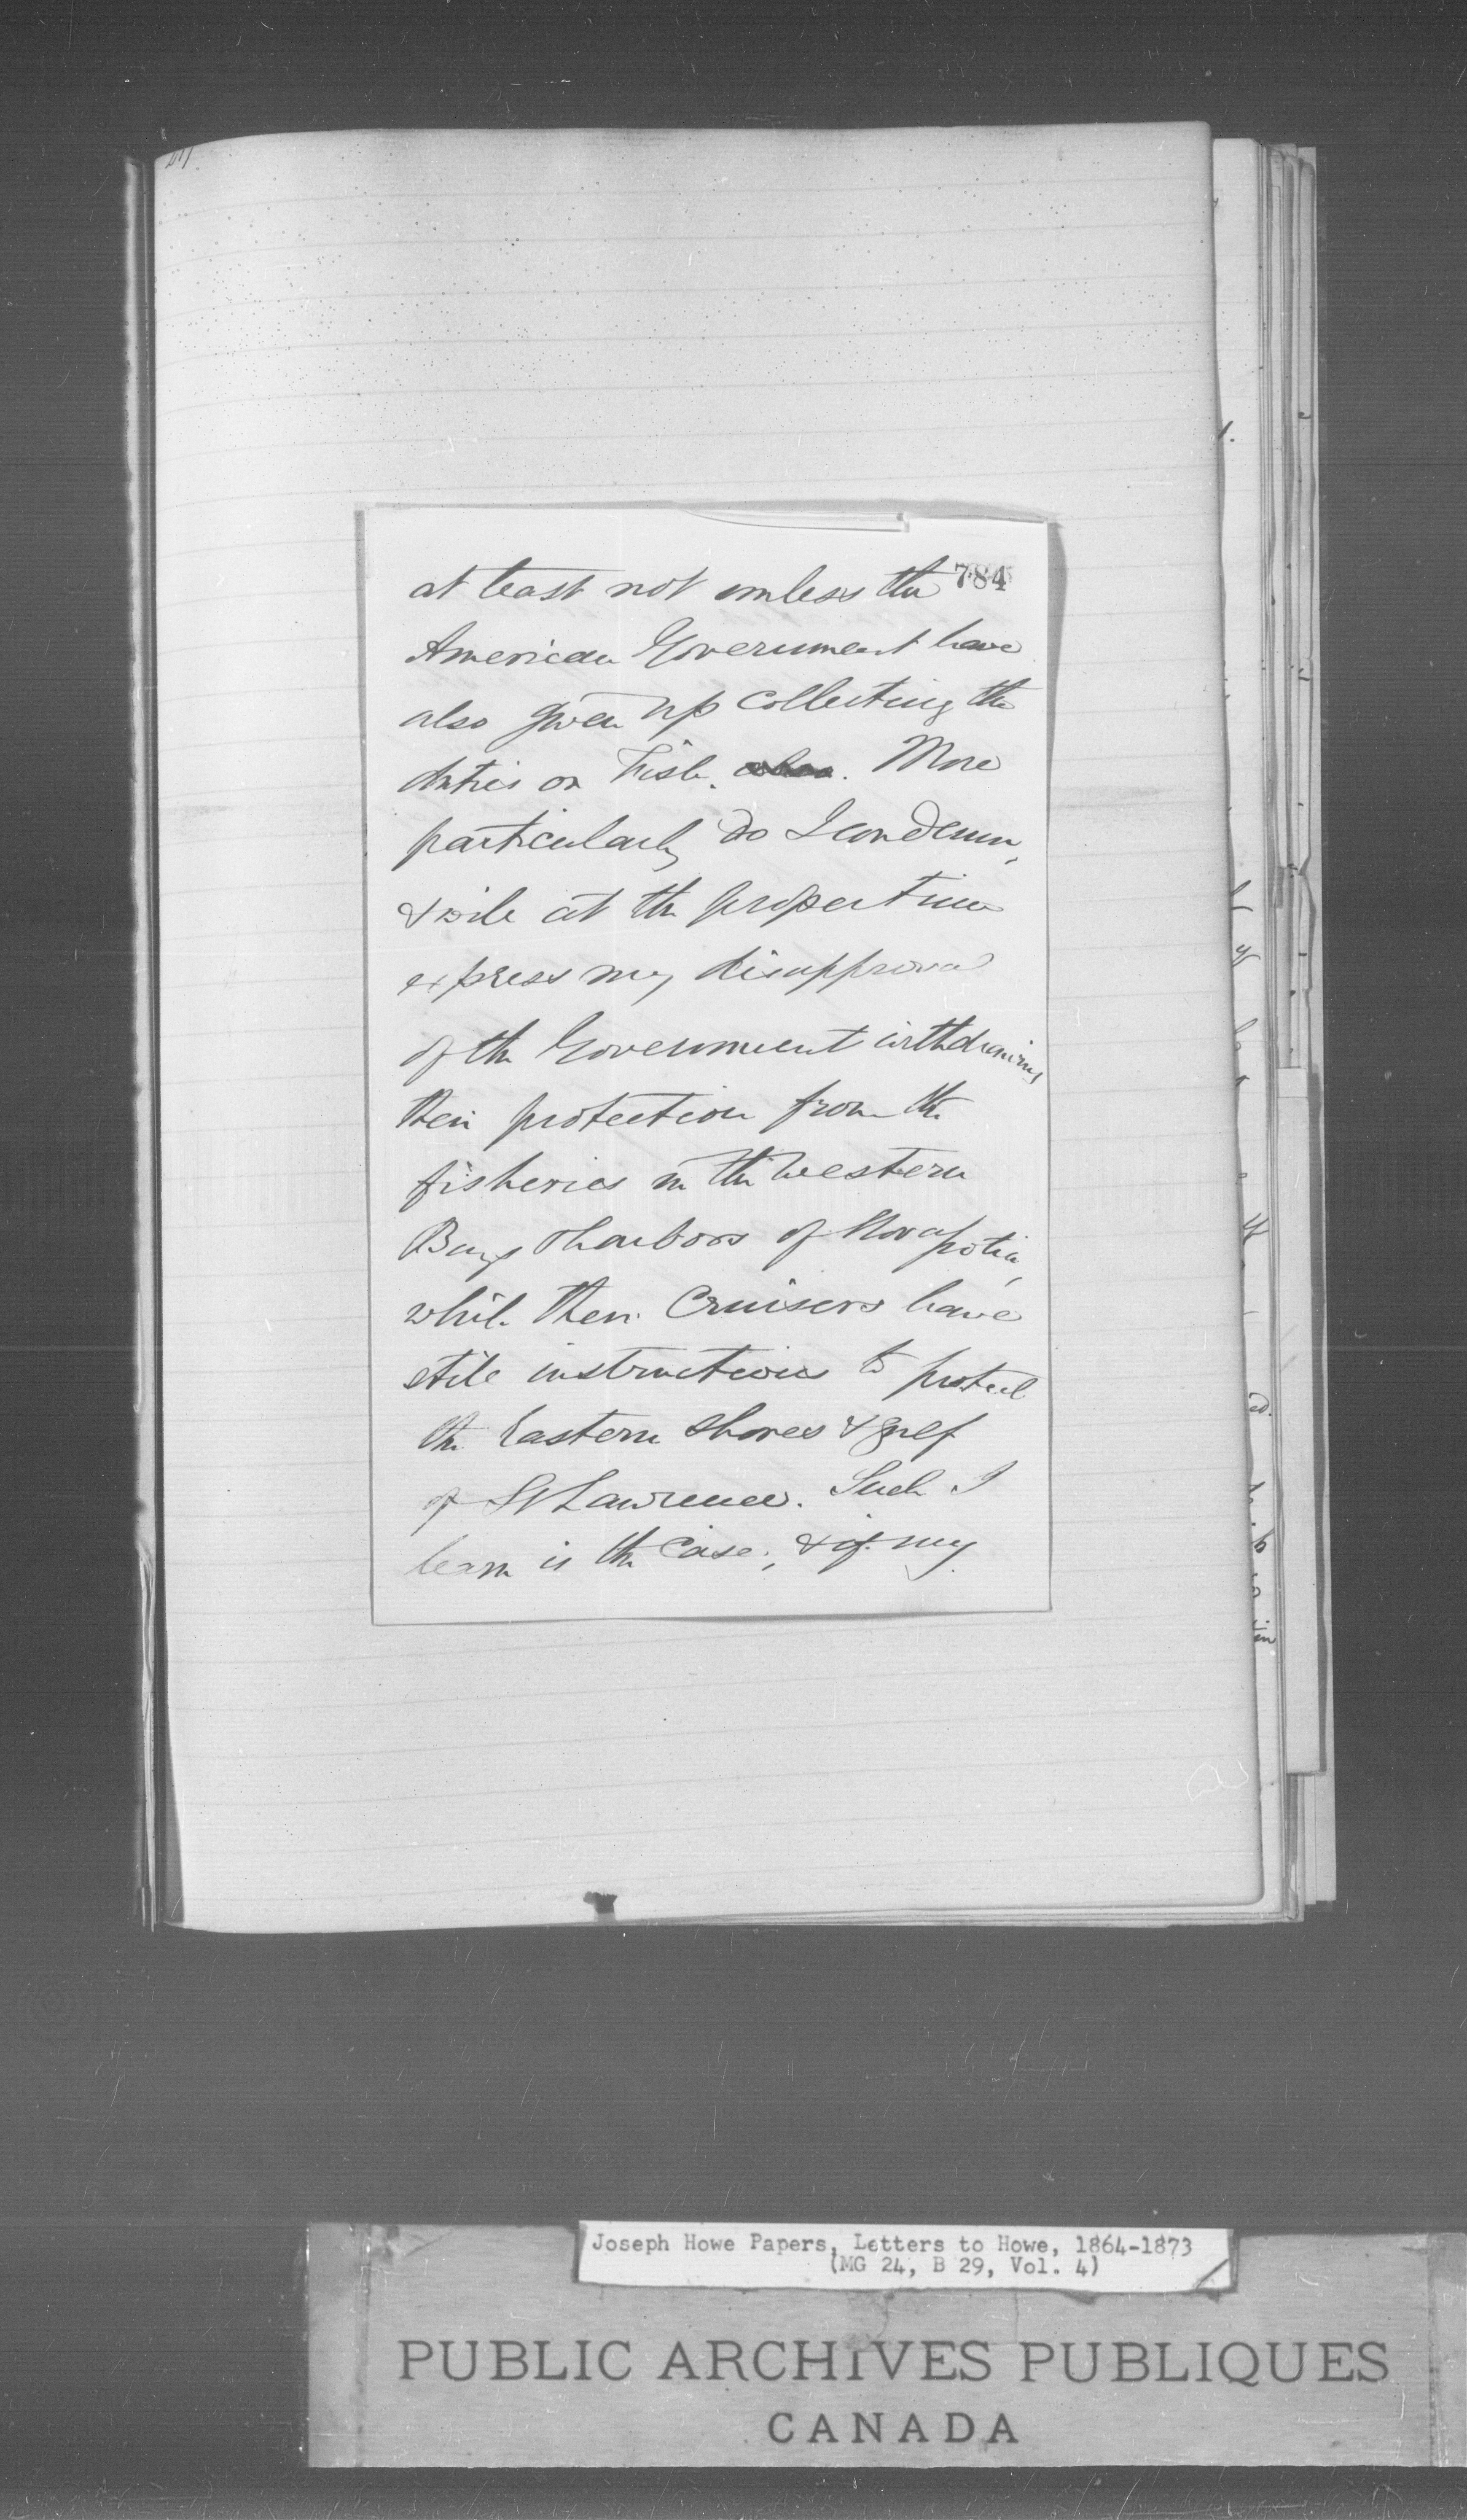 at least not unless the 784
American Government have
also given up collecting the
duties on Fish. also. More
particularly do I condemn,
& will at the proper time
express my disapproval
of the Government withdrawing
their protection from the
fisheries in the Western
Bays & harbors of Nova Scotia,
while their Cruisers have
still instructions to protect
the Eastern Shores & gulf
of St Lawrence. Such I
learn is the Case; & if my
Joseph Howe Papers, Letters to Howe, 1864-1873
(MG 24, B 29, Vol. 4)
PUBLIC ARCHIVES PUBLIQUES
CANADA